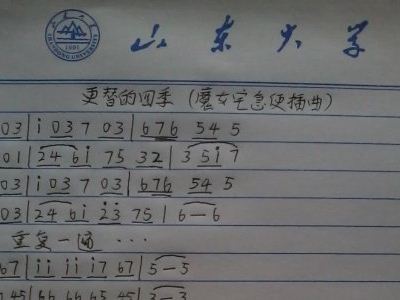 山东大学
SHANDONG UNIVERSITY
1901
更替的四季 (魔女宅急便插曲)
03 | i 03 7 03 | 676 54 5
01 | 24 6i 75 32 | 3 5i 7
03 | i 03 7 03 | 676 54 5
03 | 24 6i 23 75 | 6 — 6
重复一遍 ...
67 | ii ii i7 67 | 5 — 5
45 | 66 66 65 45 | 3 — 3